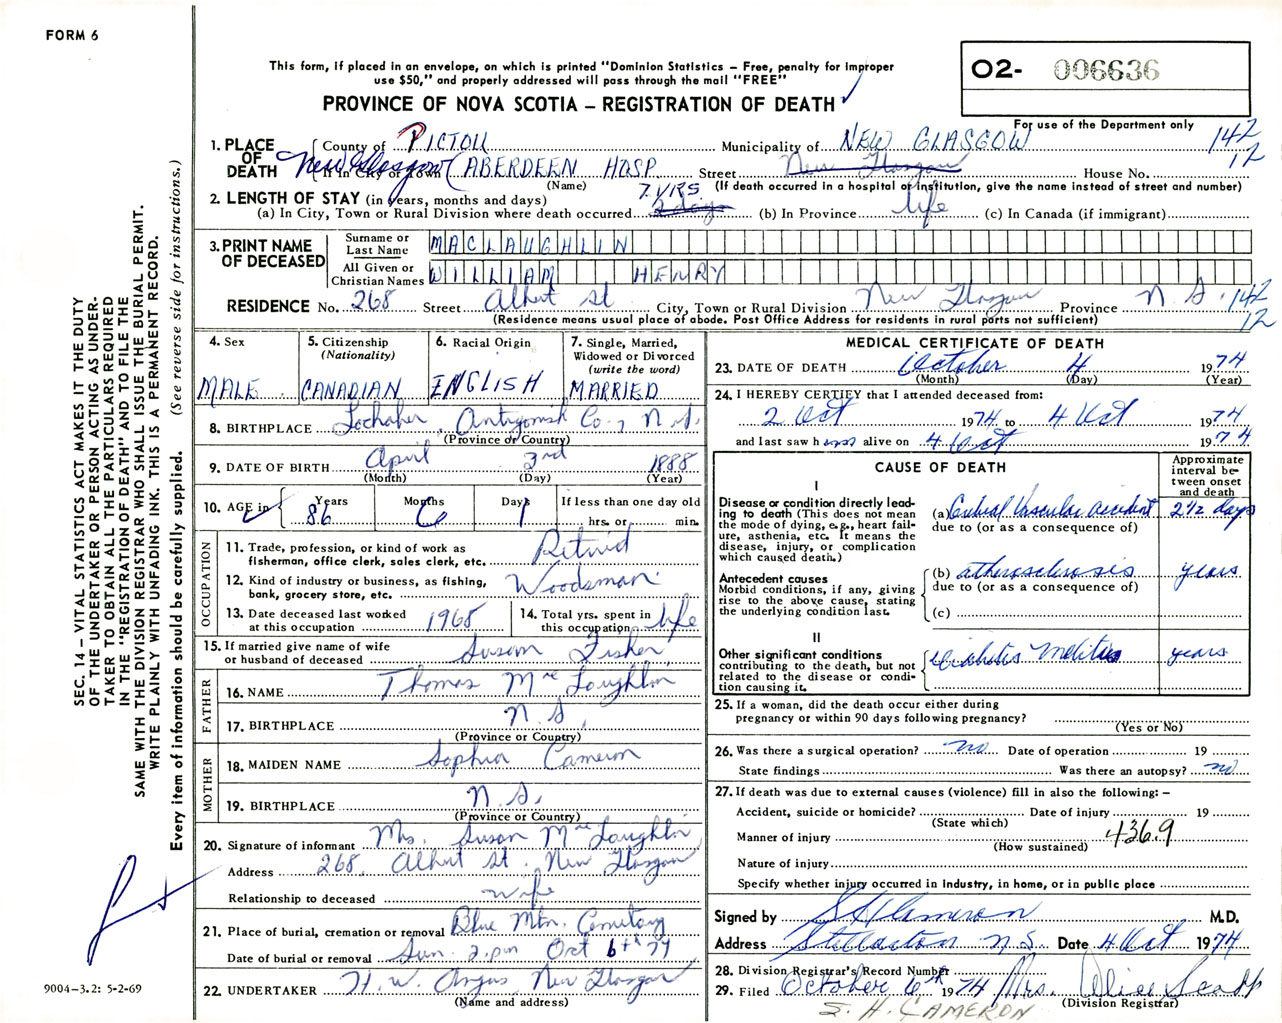 FORM 6
This form, if placed in an envelope, on which is printed "Dominion Statistics – Free, penalty for improper
use $50," and properly addressed will pass through the mail "FREE"
O2- 006636
PROVINCE OF NOVA SCOTIA – REGISTRATION OF DEATH
For use of the Department only
1. PLACE OF DEATH County of PICTOU Municipality of NEW GLASGOW 142
New Glasgow If in City or Town ABERDEEN HOSP Street New Glasgow House No. 12
(Name) (If death occurred in a hospital or institution, give the name instead of street and number)
2. LENGTH OF STAY (in years, months and days) 7 YRS.
(a) In City, Town or Rural Division where death occurred 2 days (b) In Province life (c) In Canada (if immigrant)
3. PRINT NAME OF DECEASED Surname or Last Name MACLAUGHLIN
All Given or Christian Names WILLIAM HENRY
RESIDENCE No. 268 Street Albert St City, Town or Rural Division New Glasgow Province N.S. 142
(Residence means usual place of abode. Post Office Address for residents in rural parts not sufficient) 12
4. Sex MALE
5. Citizenship (Nationality) CANADIAN
6. Racial Origin ENGLISH
7. Single, Married, Widowed or Divorced (write the word) MARRIED
8. BIRTHPLACE Lochaber, Antigonish Co., N.S.
(Province or Country)
9. DATE OF BIRTH April 3rd 1888
(Month) (Day) (Year)
10. AGE in Years 86 Months 6 Days 1 If less than one day old hrs. or min.
OCCUPATION
11. Trade, profession, or kind of work as
fisherman, office clerk, sales clerk, etc. Retired
12. Kind of industry or business, as fishing,
bank, grocery store, etc. Woodsman
13. Date deceased last worked
at this occupation 1965
14. Total yrs. spent in
this occupation life
15. If married give name of wife
or husband of deceased Susan Fisher
FATHER
16. NAME Thomas McLaughlin
17. BIRTHPLACE N.S.
(Province or Country)
MOTHER
18. MAIDEN NAME Sophia Cameron
19. BIRTHPLACE N.S.
(Province or Country)
20. Signature of informant Mrs. Susan McLaughlin
Address 268 Albert St. New Glasgow
Relationship to deceased wife
21. Place of burial, cremation or removal Blue Mtn. Cemetary
Date of burial or removal Sun. 2 p.m Oct 6th 74
22. UNDERTAKER H. W. Angus, New Glasgow
(Name and address)
MEDICAL CERTIFICATE OF DEATH
23. DATE OF DEATH October 4 1974
(Month) (Day) (Year)
24. I HEREBY CERTIFY that I attended deceased from:
2 Oct 1974 to 4 Oct 1974
and last saw him alive on 4 Oct 1974
CAUSE OF DEATH
Approximate interval between onset and death
I
Disease or condition directly lead-
ing to death (This does not mean
the mode of dying, e.g., heart fail-
ure, asthenia, etc. It means the
disease, injury, or complication
which caused death.)
(a) Cerebral Vascular accident 2 1/2 days
due to (or as a consequence of)
Antecedent causes
Morbid conditions, if any, giving
rise to the above cause, stating
the underlying condition last.
(b) atherosclerosis years
due to (or as a consequence of)
(c)
II
Other significant conditions
contributing to the death, but not
related to the disease or condi-
tion causing it.
Diabetis Melitus years
25. If a woman, did the death occur either during
pregnancy or within 90 days following pregnancy?
(Yes or No)
26. Was there a surgical operation? no Date of operation 19
State findings Was there an autopsy? no
27. If death was due to external causes (violence) fill in also the following: –
Accident, suicide or homicide? Date of injury 19
(State which)
Manner of injury 436.9
(How sustained)
Nature of injury
Specify whether injury occurred in industry, in home, or in public place
Signed by S H Cameron M.D.
Address Stellarton N.S. Date 4 Oct 1974
28. Division Registrar's Record Number
29. Filed October 6th 1974 Mrs. Alice Scapp
(Division Registrar)
S. H. CAMERON
SEC. 14 – VITAL STATISTICS ACT MAKES IT THE DUTY
OF THE UNDERTAKER OR PERSON ACTING AS UNDER-
TAKER TO OBTAIN ALL THE PARTICULARS REQUIRED
IN THE "REGISTRATION OF DEATH" AND TO FILE THE
SAME WITH THE DIVISION REGISTRAR WHO SHALL ISSUE THE BURIAL PERMIT.
WRITE PLAINLY WITH UNFADING INK. THIS IS A PERMANENT RECORD.
Every item of information should be carefully supplied. (See reverse side for instructions.)
9004-3.2: 5-2-69